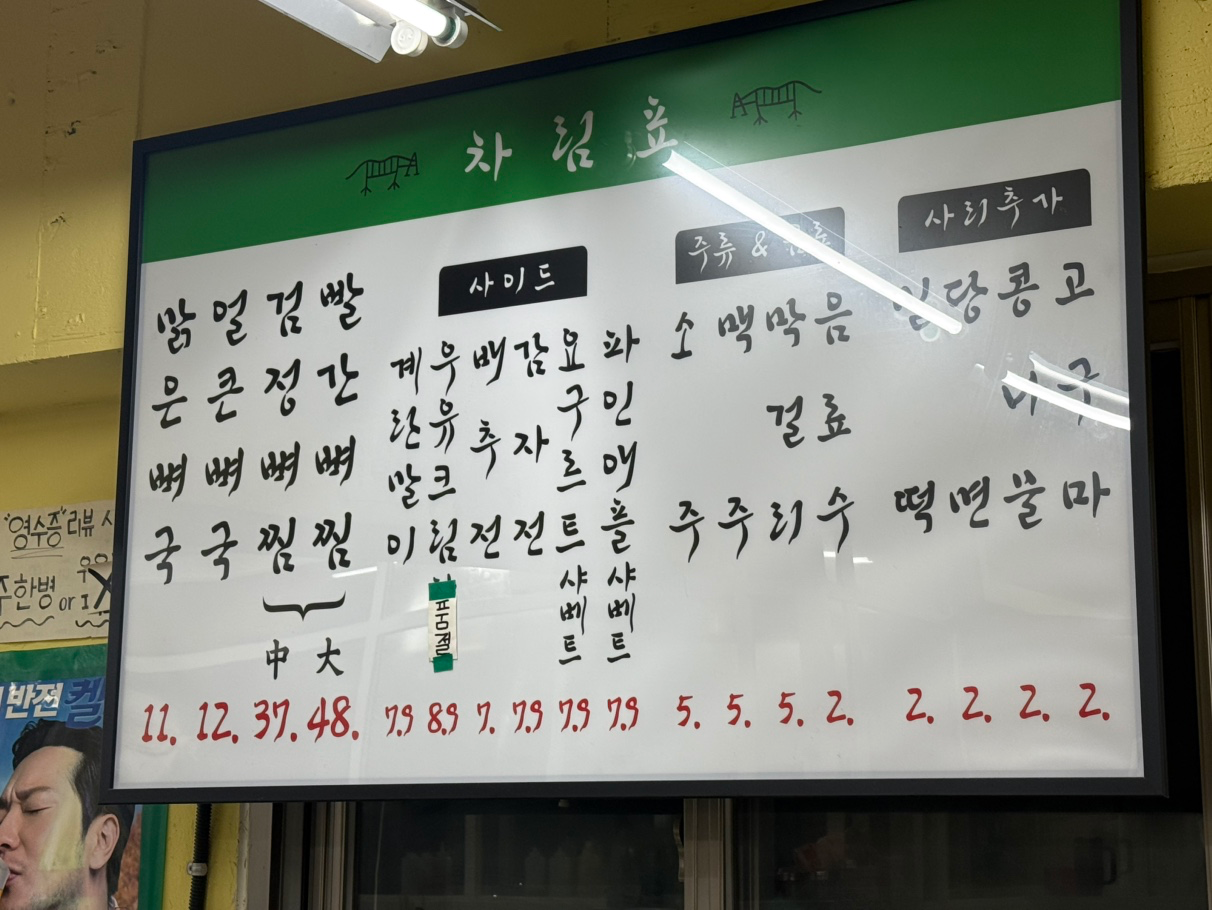 차림표
맑은뼈국 11.
얼큰뼈국 12.
검정뼈찜 中 37.
빨간뼈찜 大 48.
사이드
계란말이 7.9
우유크림 품절 8.9
배추전 7.
감자전 7.9
요구르트샤베트 7.9
파인애플샤베트 7.9
주류 & 음료
소주 5.
맥주 5.
막걸리 5.
음료수 2.
사리추가
떡 2.
당면 2.
콩나물 2.
고구마 2.
"영수증"리뷰
한병 or
반전